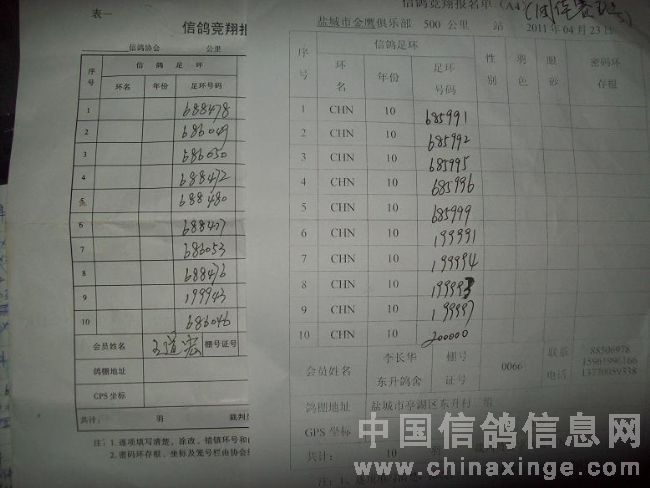 表一
信鸽竞翔报
信鸽协会 公里
序号 信鸽足环
环名 年份 足环号码
1 688478
2 686049
3 686050
4 688472
5 688480
6 688477
7 686053
8 688476
9 199943
10 686046
会员姓名 王道宏 棚号证号
鸽棚地址
GPS 坐标
共计: 羽 裁判
注: 1. 逐项填写清楚、涂改、错镇环号和
2. 密码环存根、坐标及笼号栏由协会
信鸽竞翔报名单 (A4
盐城市金鹰俱乐部 500 公里 站 2011 年 04 月 23 日
序号 信鸽足环 性别 羽色 眼砂 密码环存根
环名 年份 足环号码
1 CHN 10 685991
2 CHN 10 685992
3 CHN 10 685995
4 CHN 10 685996
5 CHN 10 685999
6 CHN 10 199991
7 CHN 10 199994
8 CHN 10 199993
9 CHN 10 199997
10 CHN 10 200000
会员姓名 李长华 东升鸽舍 棚号证号 0066 联系电话 88506978
鸽棚地址 盐城市亭湖区东升村 组
GPS 坐标
共计: 10
中国信鸽信息网
www.chinaxinge.com